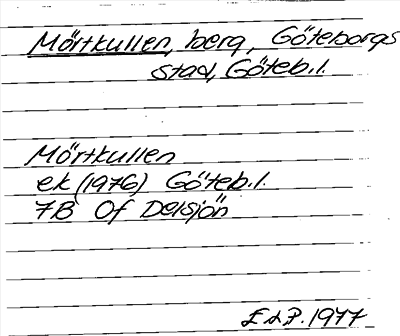 Mörtkullen, berg, Göteborgs
stad, Göteb.l.
Mörtkullen
ek (1976) Göteb.l.
7B Of Delsjön
1977